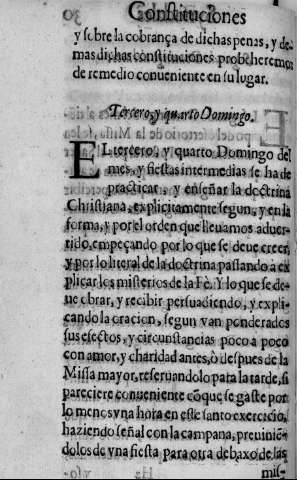 Constituciones
y sobre la cobrança de dichas penas, y de-
mas dichas constituciones probeheremos
de remedio conueniente en su lugar.
Tercero, y quarto Domingo.
EL tercero, y quarto Domingo del
mes, y fiestas intermedias se ha de
practicar, y enseñar la doctrina
Christiana, explicitamente segun, y en la
forma, y por el orden que lleuamos aduer-
tido, empeçando por lo que se deue creer,
y por lo literal de la doctrina passando a ex
plicar los misterios de la Fè. Y lo que se de-
ue obrar, y recibir persuadiendo, y expli-
cando la oracion, segun van ponderados
sus efectos, y circunstancias poco a poco
con amor, y charidad antes, ò despues de la
Missa mayor, reseruandolo para la tarde, si
pareciere conueniente cõ que se gaste por
lo menos vna hora en este santo exercicio,
haziendo señal con la campana, preuiniẽ-
dolos de vna fiesta para otra debaxo de las
mis-